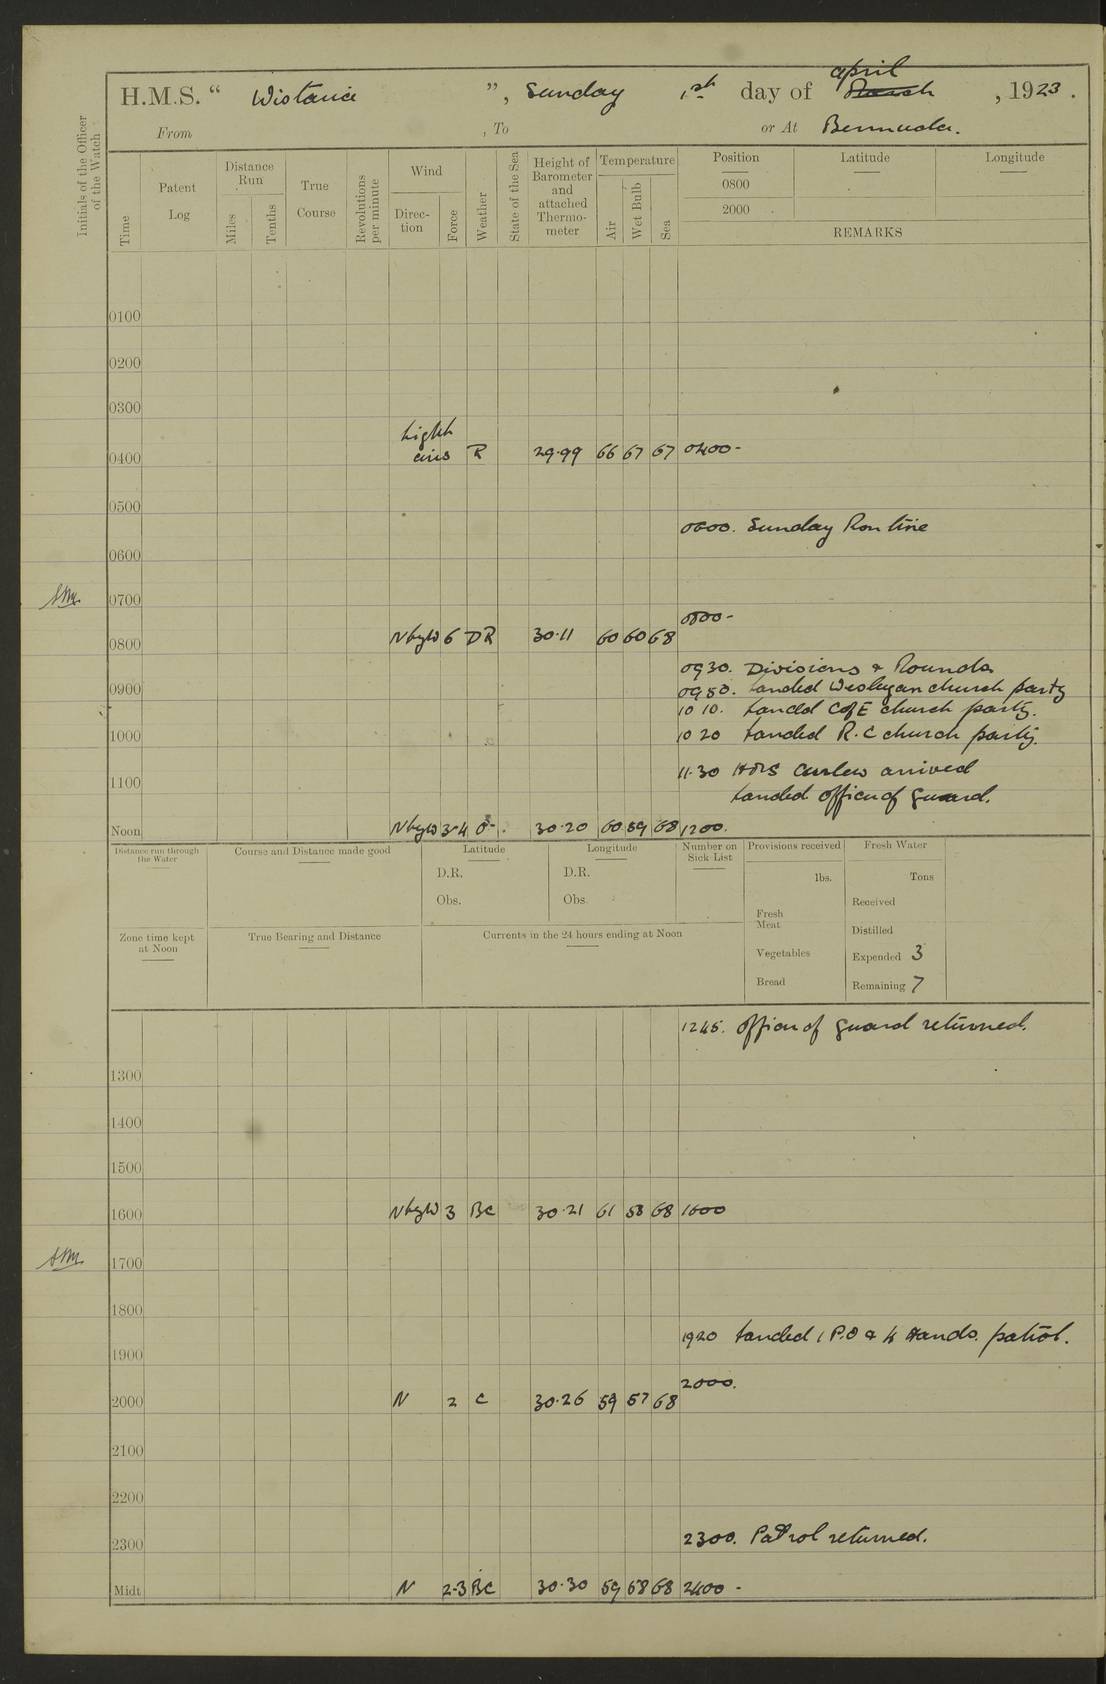 april
H.M.S. “ Wistaria ”, Sunday 1st day of March , 1923 .
From , To or At Bermuda.
Initials of the Officer
of the Watch
Time
Patent
Log
Distance
Run
Miles
Tenths
True
Course
Revolutions
per minute
Wind
Direc-
tion
Force
Weather
State of the Sea
Height of
Barometer
and
attached
Thermo-
meter
Temperature
Air
Wet Bulb
Sea
Position
0800
2000
Latitude
Longitude
REMARKS
0100
0200
0300
light
0400 airs R 29.99 66 67 67 0400-
0500
0600. Sunday Routine
0600
0700
0800-
0800 NbyW 6 DR 30.11 60 60 68
0930. Divisions & Rounds
0900 0950. Landed Wesleyan church party
1010. Landed C of E church party.
1000 1020 Landed R.C church party.
1130 HMS Curlew arrived
1100
Landed officer of guard.
Noon NbyW 3-4 O-. 30.20 60 59 68 1200.
Distance run through
the Water
Course and Distance made good
Latitude
D.R.
Obs.
Longitude
D.R.
Obs.
Number on
Sick List
Provisions received
lbs.
Fresh
Meat
Vegetables
Bread
Fresh Water
Tons
Received
Distilled
Expended 3
Remaining 7
Zone time kept
at Noon
True Bearing and Distance
Currents in the 24 hours ending at Noon
1245. Officer of guard returned.
1300
1400
1500
1600 NbyW 3 BC 30.21 61 58 68 1600
1700
1800
1920 Landed 1 P.O & 4 Hands. patrol.
1900
2000.
2000 N 2 C 30.26 59 57 68
2100
2200
2300. Patrol returned.
2300
Midt N 2-3 BC 30.30 59 58 68 2400 -